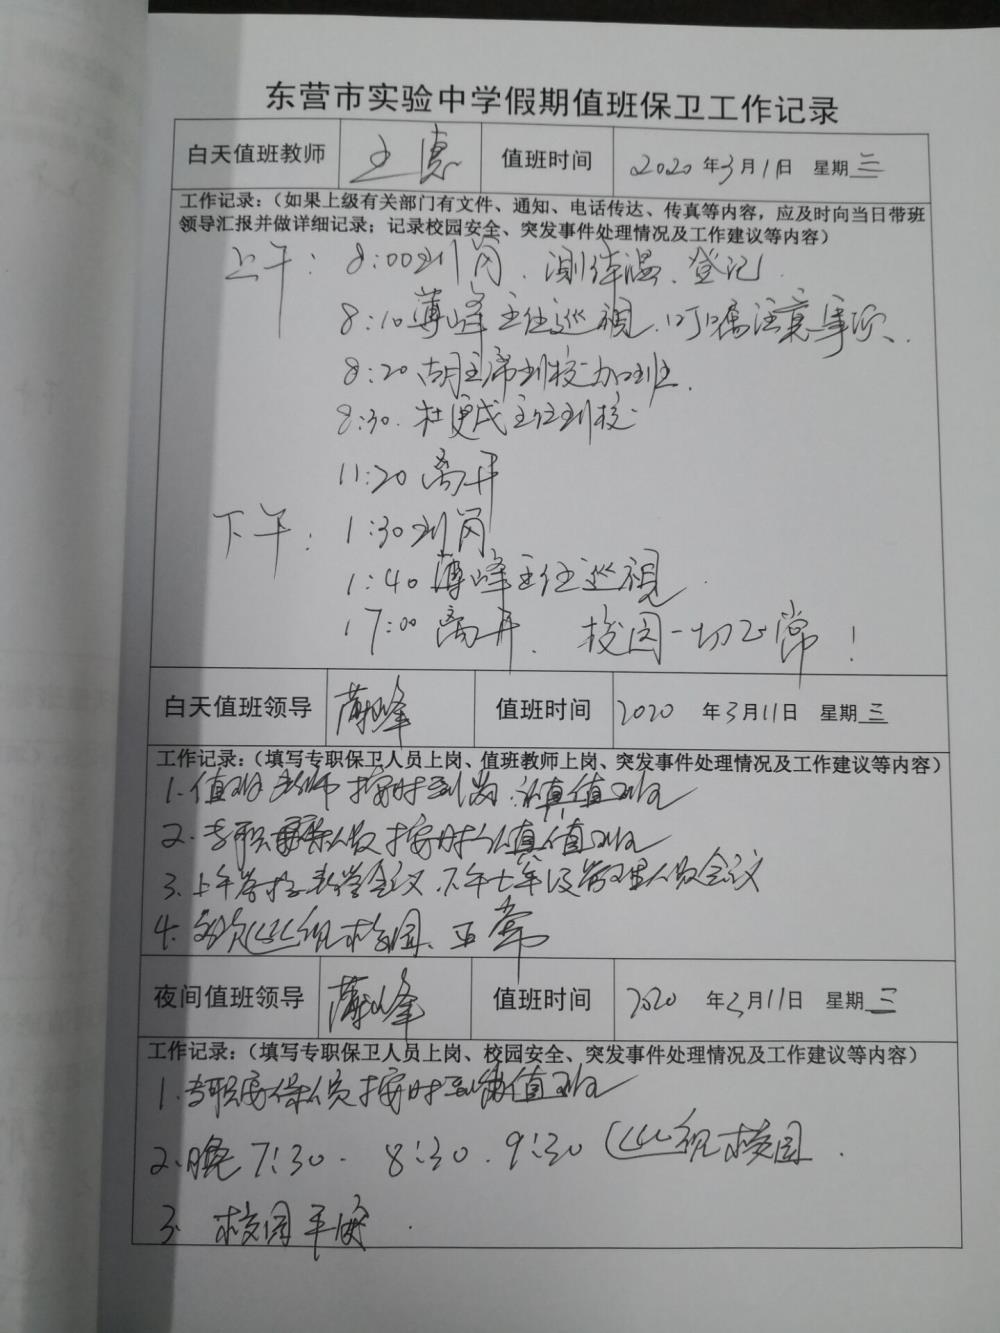 东营市实验中学假期值班保卫工作记录
白天值班教师 王惠 值班时间 2020年3月11日 星期三
工作记录：（如果上级有关部门有文件、通知、电话传达、传真等内容，应及时向当日带班
领导汇报并做详细记录；记录校园安全、突发事件处理情况及工作建议等内容）
上午：8:00到岗、测体温、登记
8:10薄峰主任巡视，叮嘱注意事项、
8:20胡主席到校加班.
8:30.杜更成主任到校
11:20离开
下午：1:30到岗
1:40薄峰主任巡视.
17:00离开. 校园一切正常！
白天值班领导 薄峰 值班时间 2020 年3月11日 星期三
工作记录：（填写专职保卫人员上岗、值班教师上岗、突发事件处理情况及工作建议等内容）
1.值班老师按时到岗，认真值班
2.专职 人员按时认真值班
3.上午 教学会议，下午七年级管理人员会议
4.多次巡视校园、正常
夜间值班领导 薄峰 值班时间 2020 年3月11日 星期三
工作记录：（填写专职保卫人员上岗、校园安全、突发事件处理情况及工作建议等内容）
1.专职安保人员按时到岗值班
2.晚7:30. 8:30. 9:30巡视校园.
3. 校园平安.